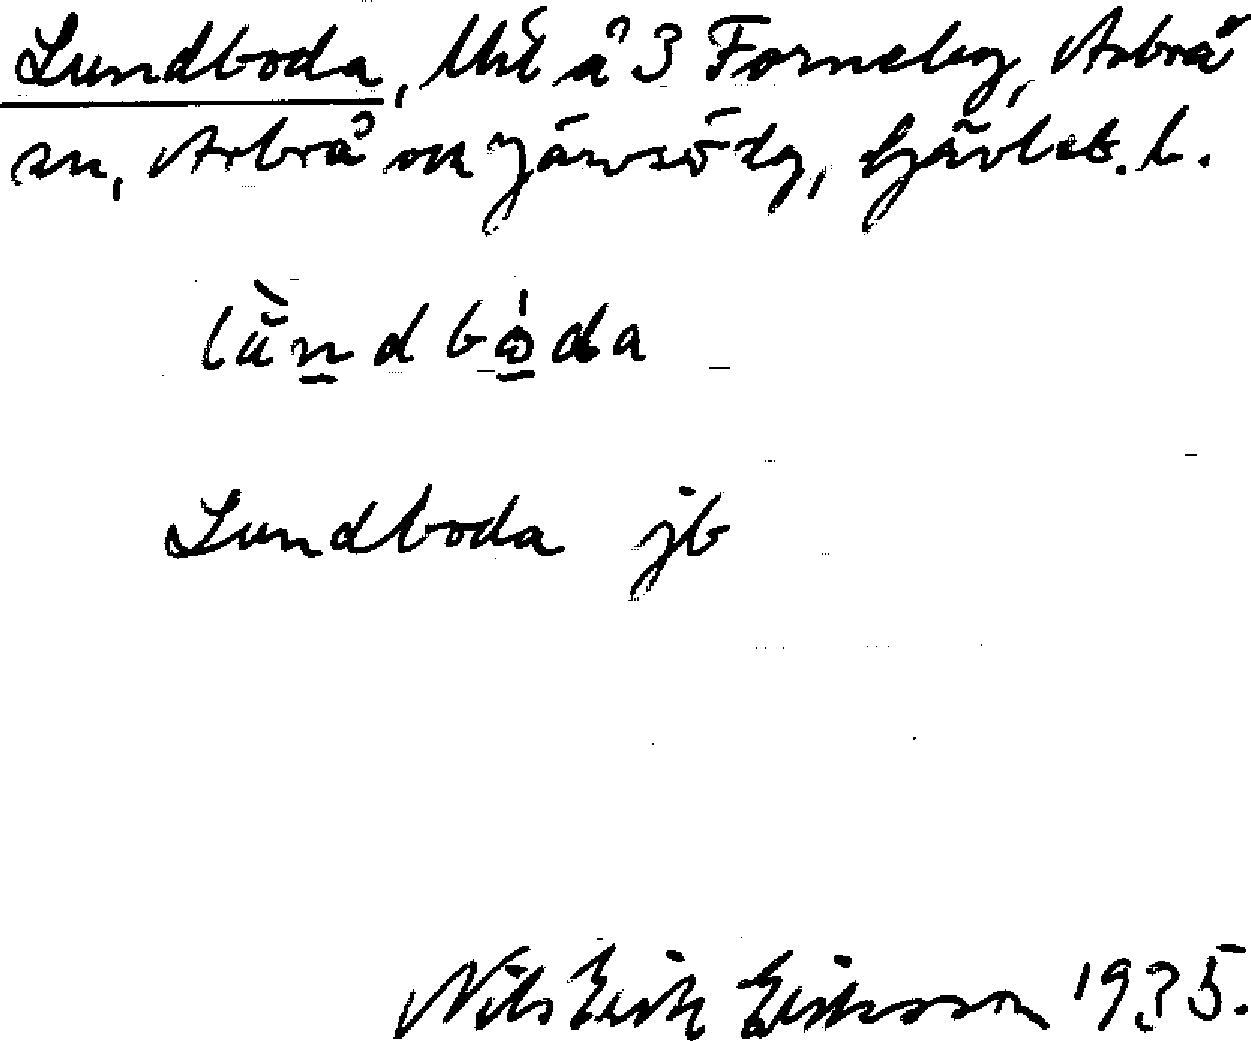 Lundboda, lht å 3 Forneby, Arbrå
sn, Arbrå och Järvsö tg, Gävleb. l.
lŭ̀ndbo̱da
Lundboda jb
Nils Erik Eriksson 1935.